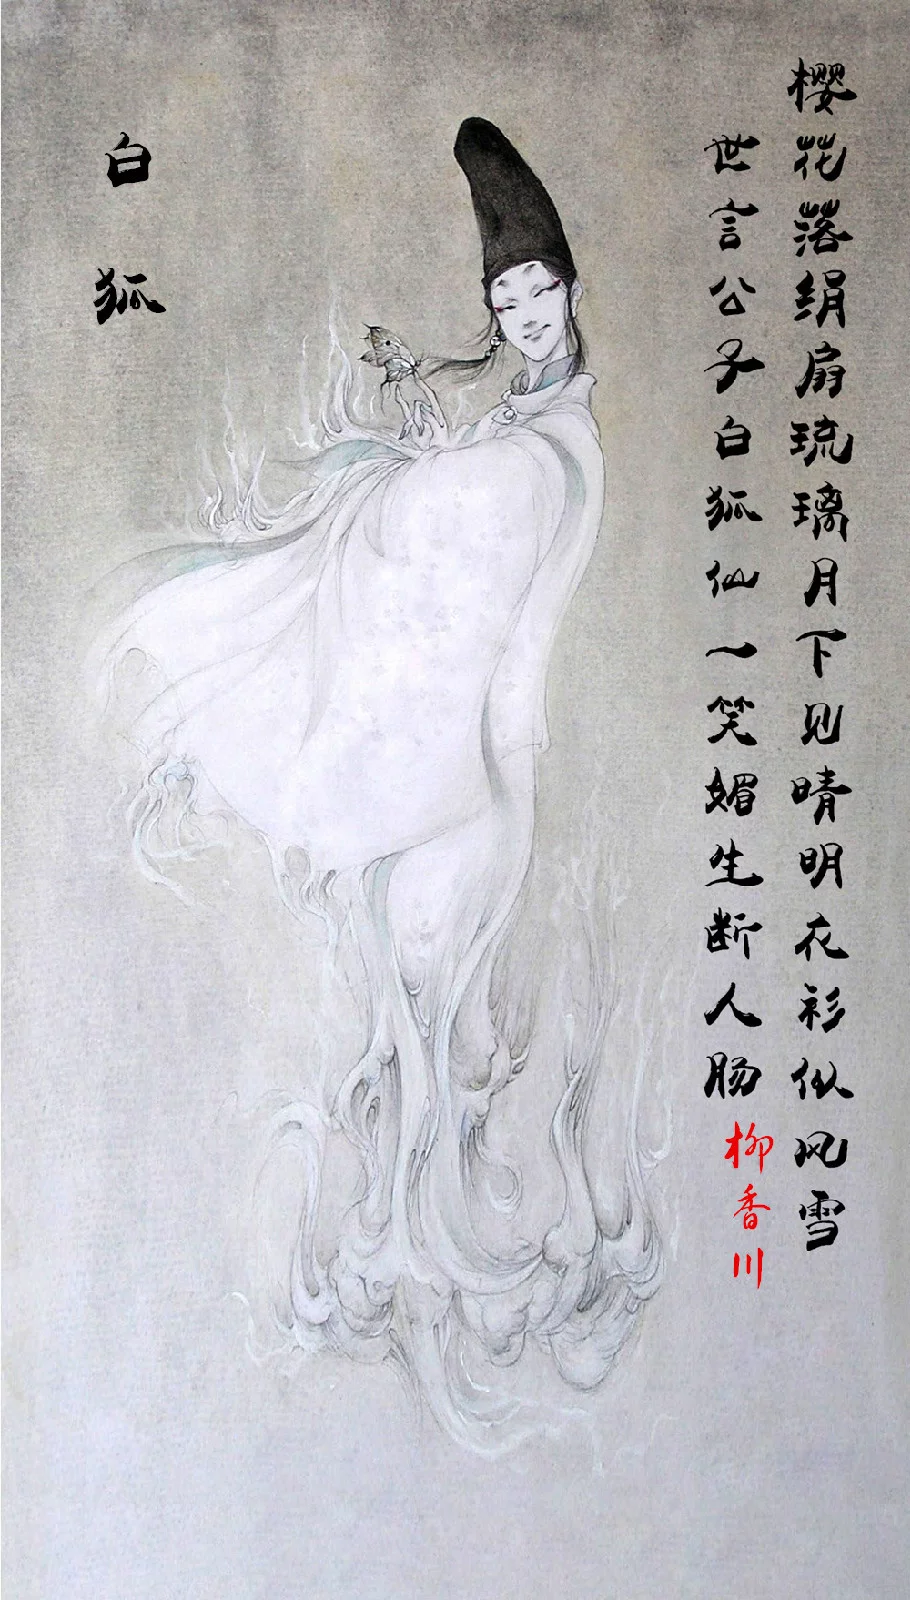 樱花落绢扇琉璃月下见晴明花衫似风雪
世言公子白狐仙一笑媚生断人肠
柳香川
白狐